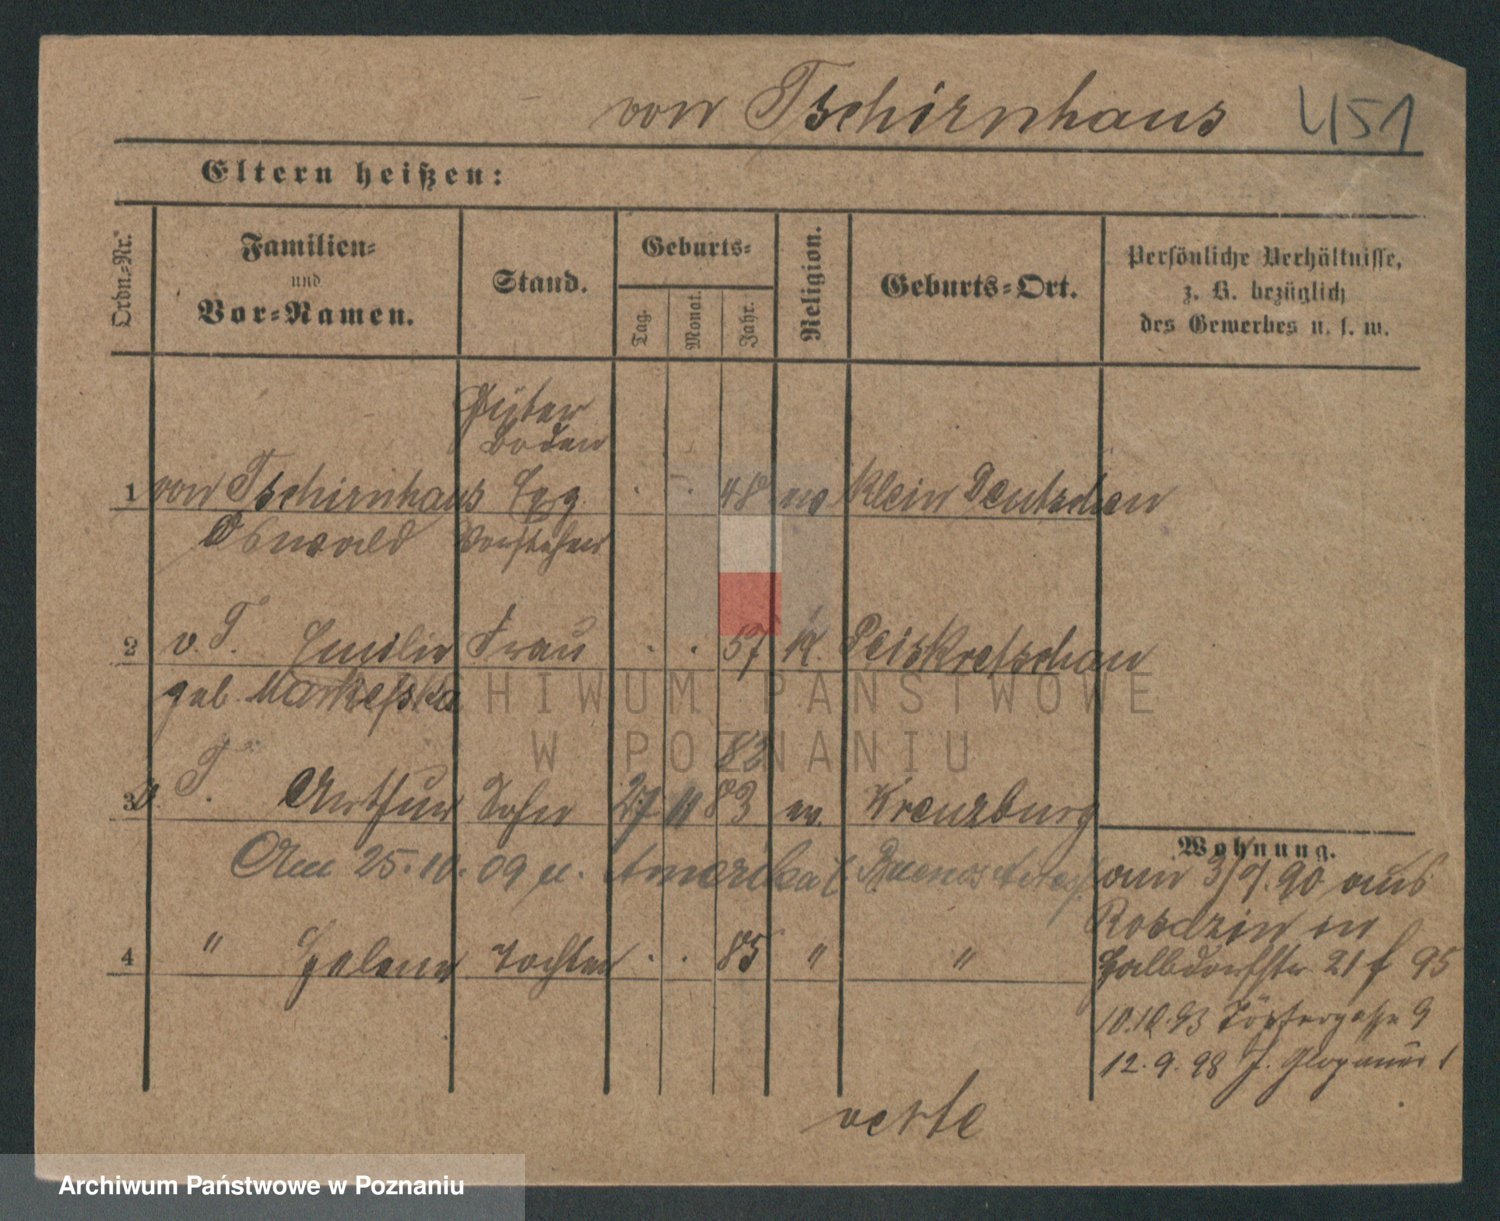 von Tschirnhaus 451
Eltern heißen:
Ordn.-Nr.
Familien-
und
Vor-Namen.
Stand.
Geburts-
Tag.
Monat.
Jahr.
Religion.
Geburts-Ort.
Persönliche Verhältnisse,
z. B. bezüglich
des Gewerbes u. s. w.
Güter
boden
1 von Tschirnhaus 48 Klein Deutschen
Oswald Vorsteher
2 v. T. Emilie Frau 57 K. Peiskretschau
geb.
82
3 v. T. Arthur Sohn 27 11 83 w. Kreuzburg
Am 25.10.09 n. Amerika Buenos
4 " Helene Tochter 85 " "
Wohnung.
am 3/7.90 aus
Rosdzin in
Halbdorfstr 21 f 95
10.10.93 Töpfergasse 9
12.9.98 1
verte
ARCHIWUM PAŃSTWOWE
W POZNANIU
Archiwum Państwowe w Poznaniu